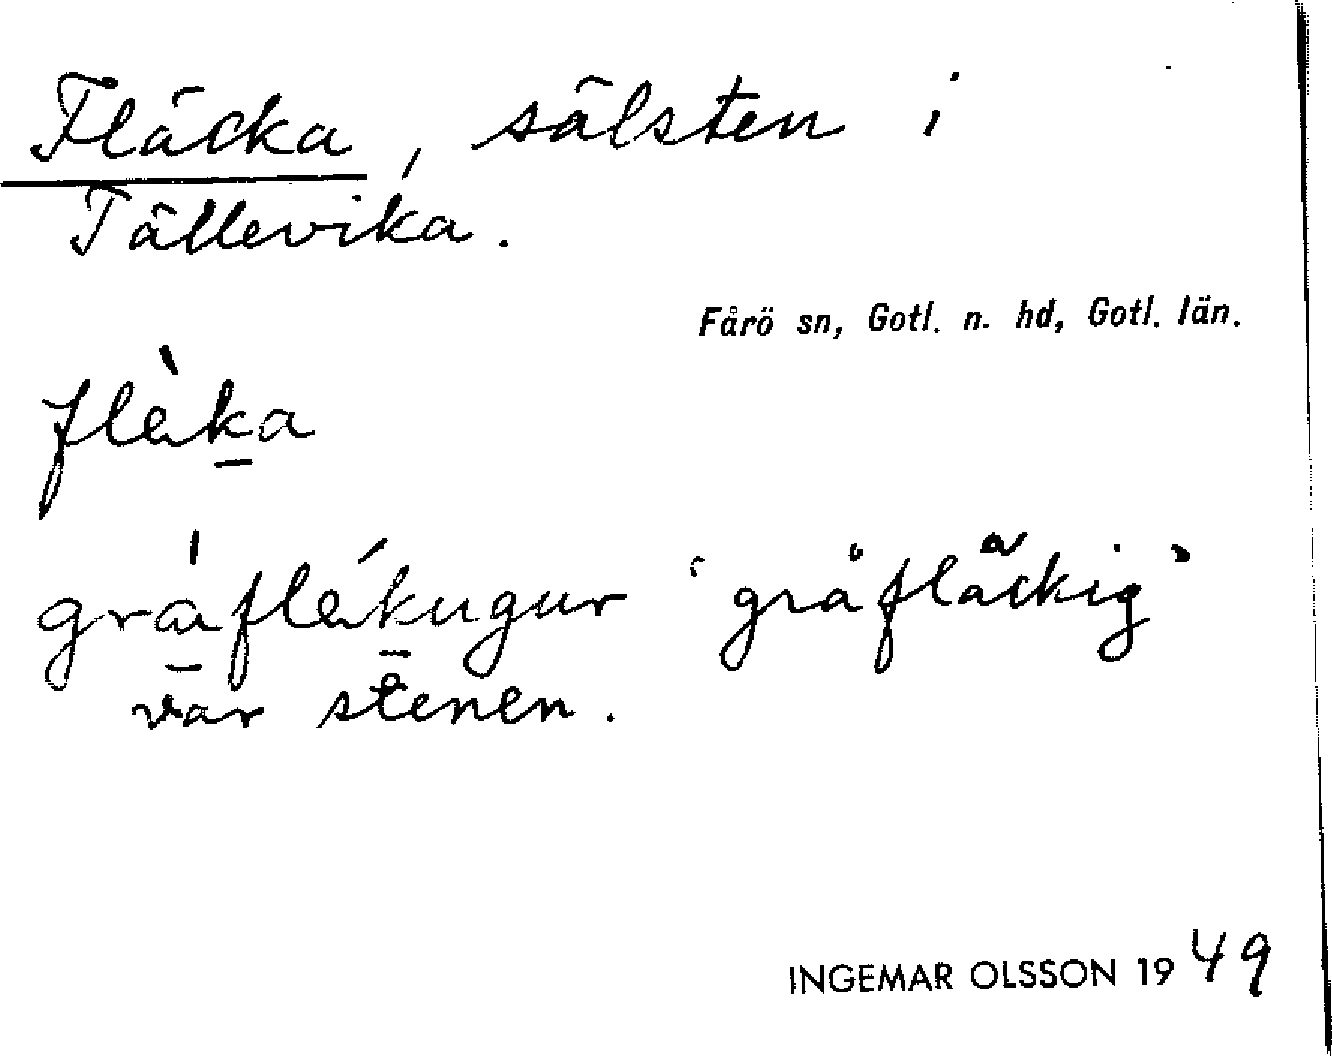 Fläcka, sälsten i
Tällevika.
Fårö sn, Gotl. n. hd, Gotl. län.
flàka
gráflákugur 'gråfläckig'
var stenen.
INGEMAR OLSSON 1949